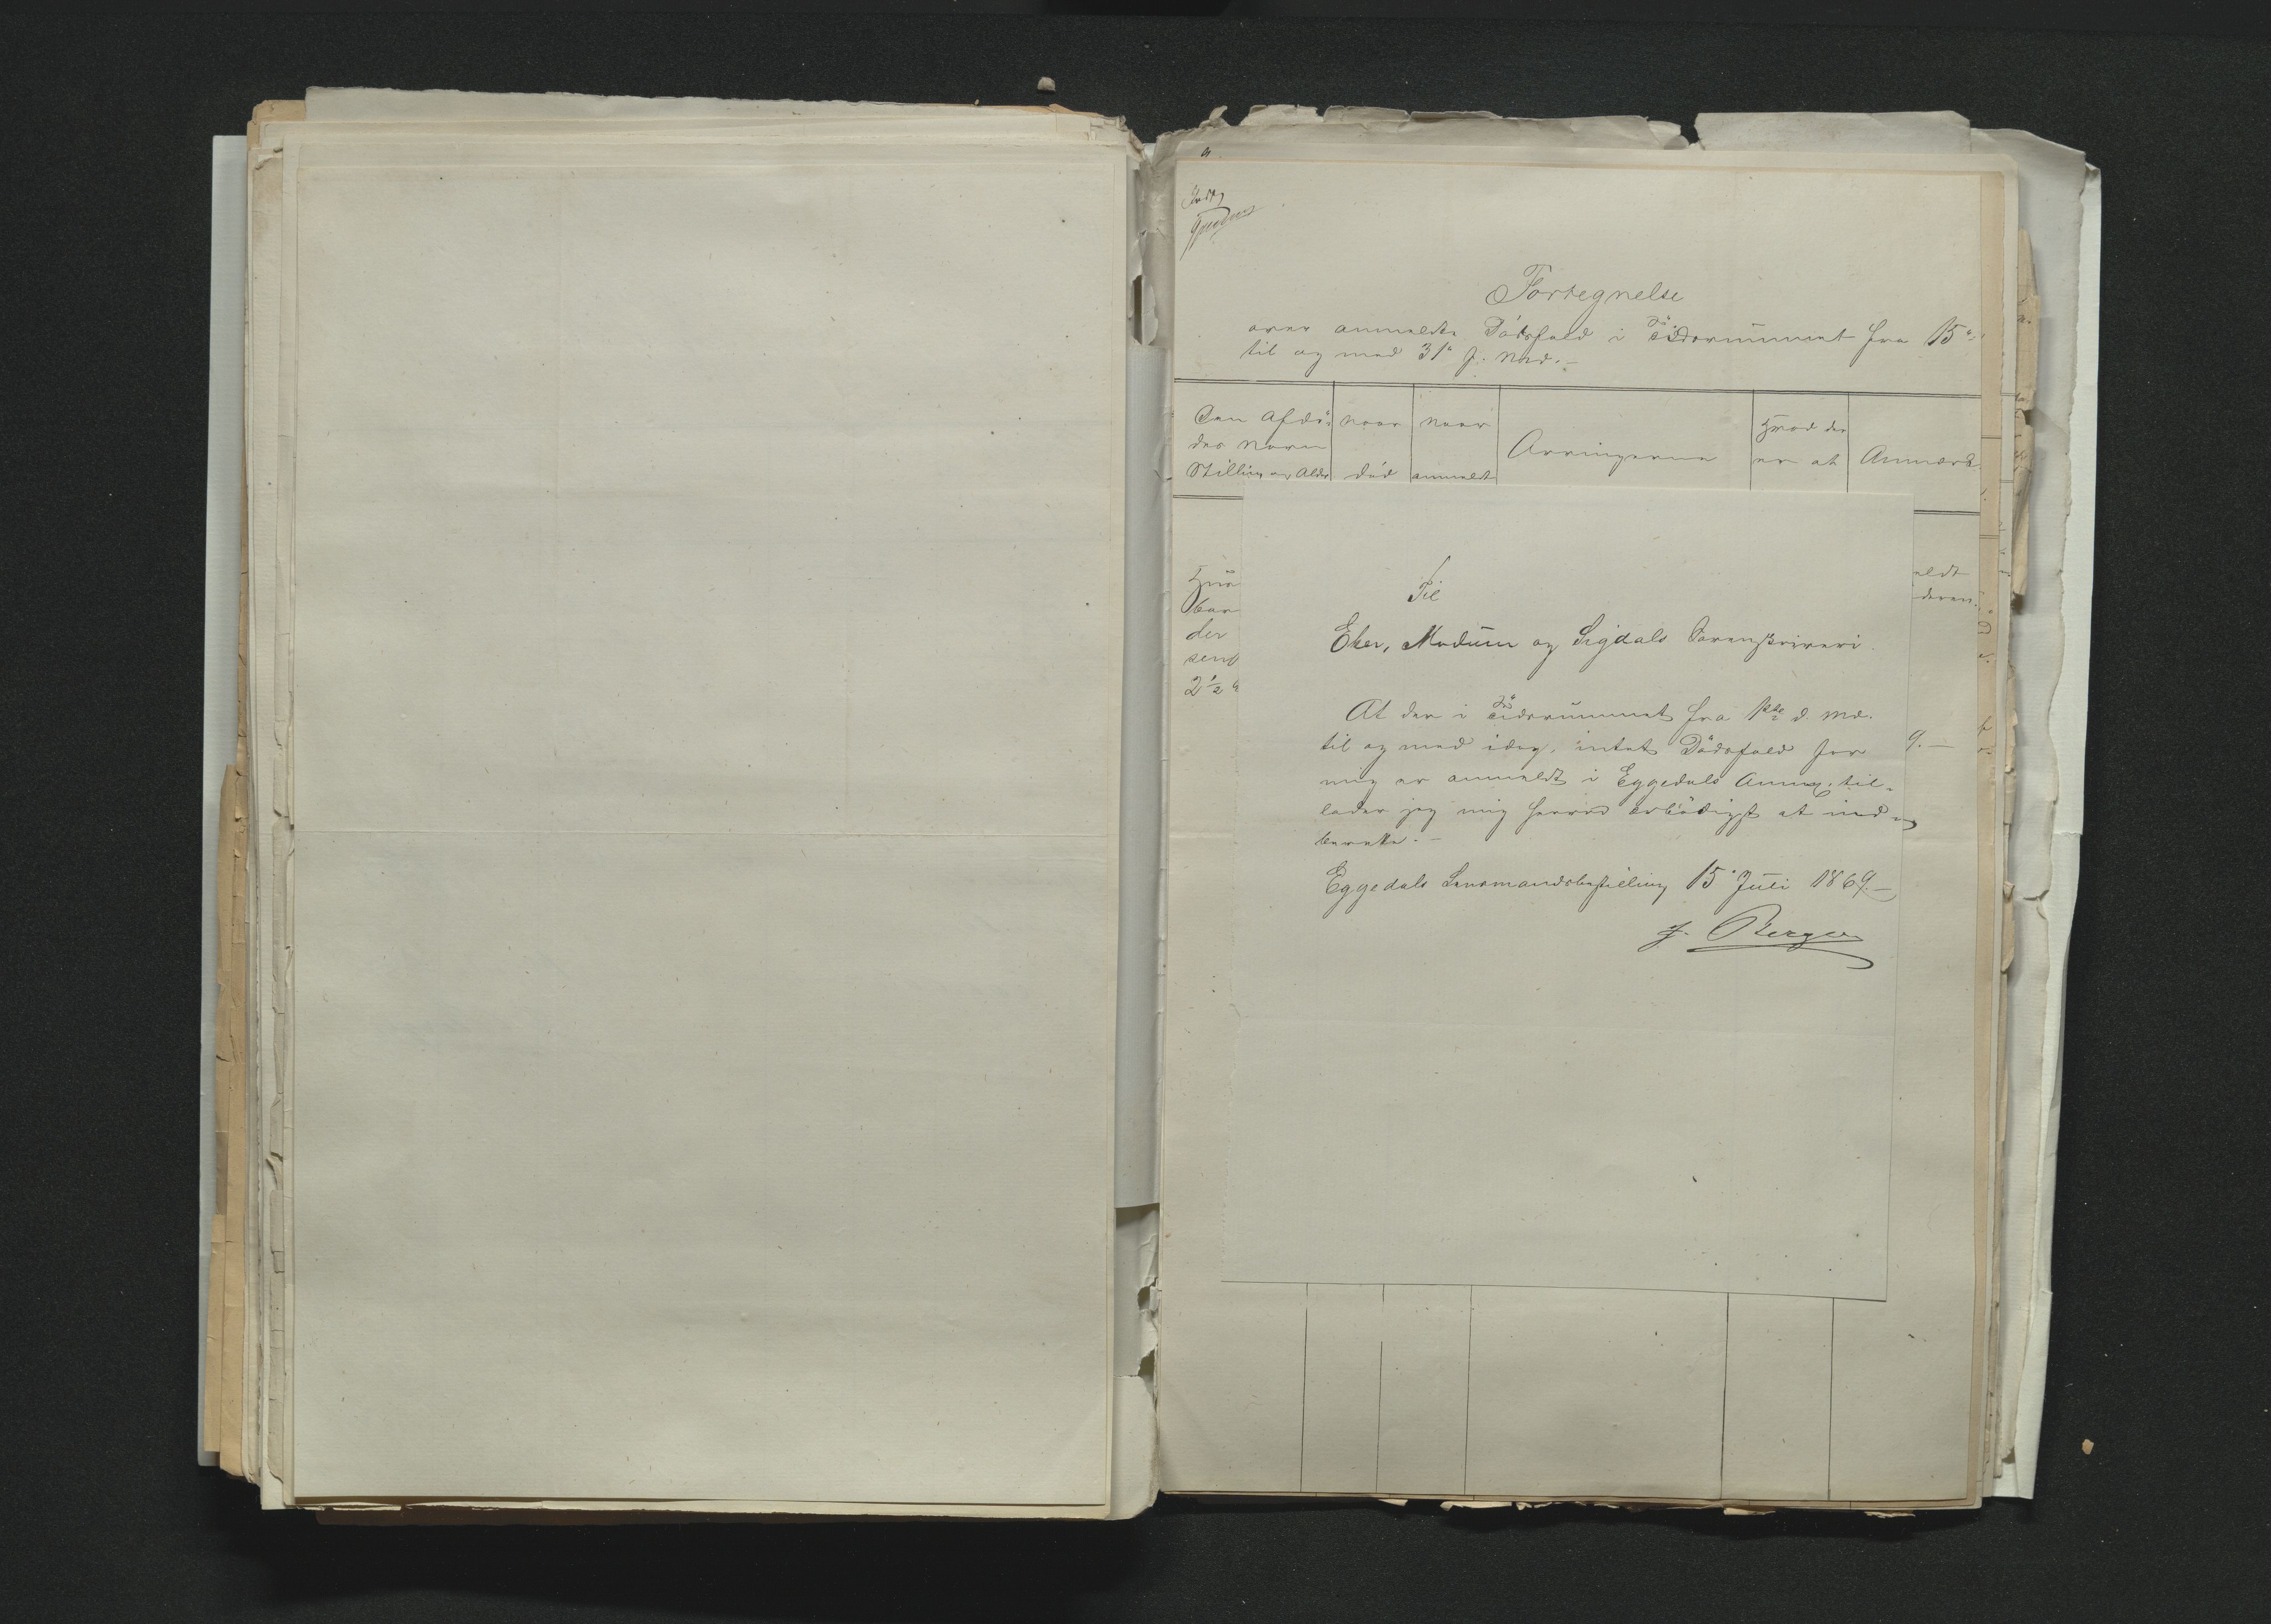 Fortegnelse
over anmeldte Dödsfald i Tidsrummet fra 15de
til og med 31te f. Md. –
Den Afdö-
des Navn
Stilling og Alder
naar
død
naar
anmeldt
Arvingerne
Hvad der
er at
Anmærk.
Huus
bar
der
sen
2 1/2
meldt
9. –
Til
Eker, Modum og Sigdals Sorenskriveri.
At der i Tidsrummet fra 1ste d. Md.
til og med idag, intet Dödsfald for
mig er anmeldt i Eggedals Annex, til-
lader jeg mig herved ærbödigst at ind-
berette. –
Eggedals Lensmandsbestilling 15de Juli 1869. –
J. Berger